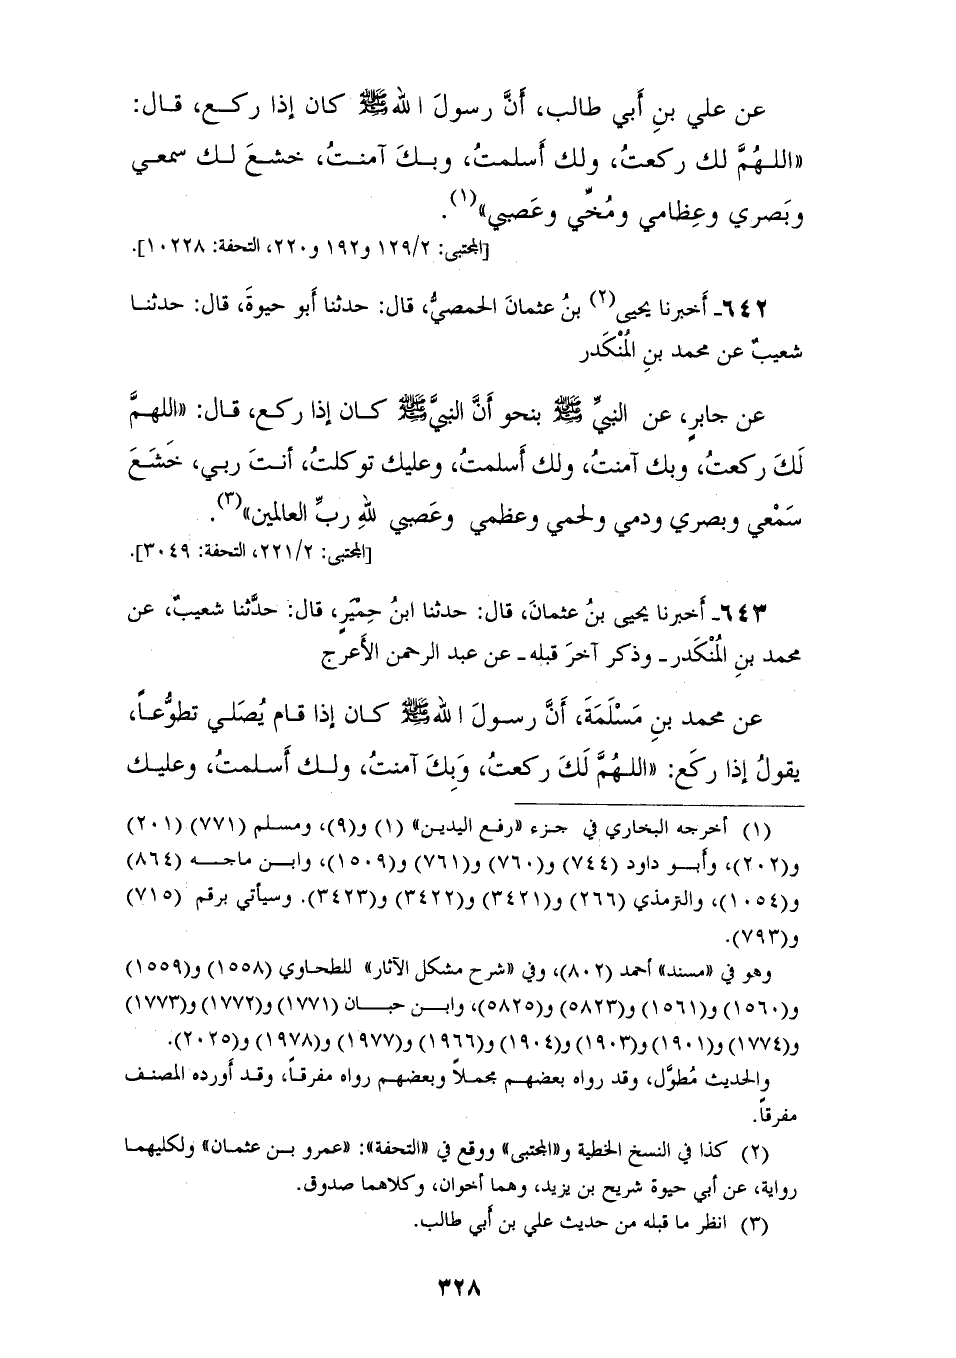 عن علي بنِ أَبي طالب، أَنَّ رسولَ الله ﷺ كان إذا ركـع، قـال:
«اللهُمَّ لك ركعتُ، ولك أَسلمتُ، وبـكَ آمنـتُ، خشـعَ لـك سمعـي
وبَصري وعِظامي ومُخِّي وعَصبي»(١).
[المجتبى: ١٢٩/٢ و١٩٢ و٢٢٠، التحفة: ١٠٢٢٨].
٦٤٢ـ أَخبرنا يحيى(٢) بنُ عثمانَ الحمصيُّ، قال: حدثنا أَبو حيوةَ، قال: حدثنـا
شعيبٌ عن محمد بنِ المُنْكَدر
عن جابرٍ، عن النبيِّ ﷺ بنحو أَنَّ النبيَّ ﷺ كـان إذا ركـع، قـال: «اللهـمَّ
لَكَ ركعتُ، وبك آمنتُ، ولك أَسلمتُ، وعليك توكلتُ، أَنتَ ربـي، خَشَـعَ
سَمْعي وبصري ودمي ولحمي وعظمي وعصبي للهِ ربِّ العالمين»(٣).
[المجتبى: ٢٢١/٢، التحفة: ٣٠٤٩].
٦٤٣ـ أَخبرنا يحيى بنُ عثمانَ، قال: حدثنا ابنُ حِمْيَرٍ، قال: حدَّثنا شعيبٌ، عن
محمد بنِ المُنْكَدر ـ وذكر آخرَ قبله ـ عن عبد الرحمن الأَعرج
عن محمد بنِ مَسْلَمَةَ، أَنَّ رسـولَ الله ﷺ كـان إذا قـام يُصَلـي تطوُّعـاً،
يقولُ إذا ركَع: «اللهُمَّ لَكَ ركعتُ، وَبِكَ آمنتُ، ولـك أَسـلمتُ، وعليـك
(١) أخرجه البخاري في جـزء «رفـع اليدين» (١) و(٩)، ومسلم (٧٧١) (٢٠١)
و(٢٠٢)، وأبـو داود (٧٤٤) و(٧٦٠) و(٧٦١) و(١٥٠٩)، وابـن ماجـه (٨٦٤)
و(١٠٥٤)، والترمذي (٢٦٦) و(٣٤٢١) و(٣٤٢٢) و(٣٤٢٣). وسيأتي برقم (٧١٥)
و(٧٩٣).
وهو في «مسند» أحمد (٨٠٢)، وفي «شرح مشكل الآثار» للطحاوي (١٥٥٨) و(١٥٥٩)
و(١٥٦٠) و(١٥٦١) و(٥٨٢٣) و(٥٨٢٥)، وابـن حبـان (١٧٧١) و(١٧٧٢) و(١٧٧٣)
و(١٧٧٤) و(١٩٠١) و(١٩٠٣) و(١٩٠٤) و(١٩٦٦) و(١٩٧٧) و(١٩٧٨) و(٢٠٢٥).
والحديث مُطوَّل، وقد رواه بعضهـم مجمـلاً وبعضهـم رواه مفرقـاً، وقـد أورده المصنـف
مفرقاً.
(٢) كذا في النسخ الخطية و«المجتبى» ووقع في «التحفة»: «عمرو بـن عثمـان» ولكليهمـا
رواية، عن أبي حيوة شريح بن يزيد، وهما أخوان، وكلاهما صدوق.
(٣) انظر ما قبله من حديث علي بن أَبي طالب.
٣٢٨